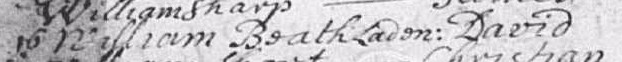 William Sharp
16 William Beath Laden: David
Christian